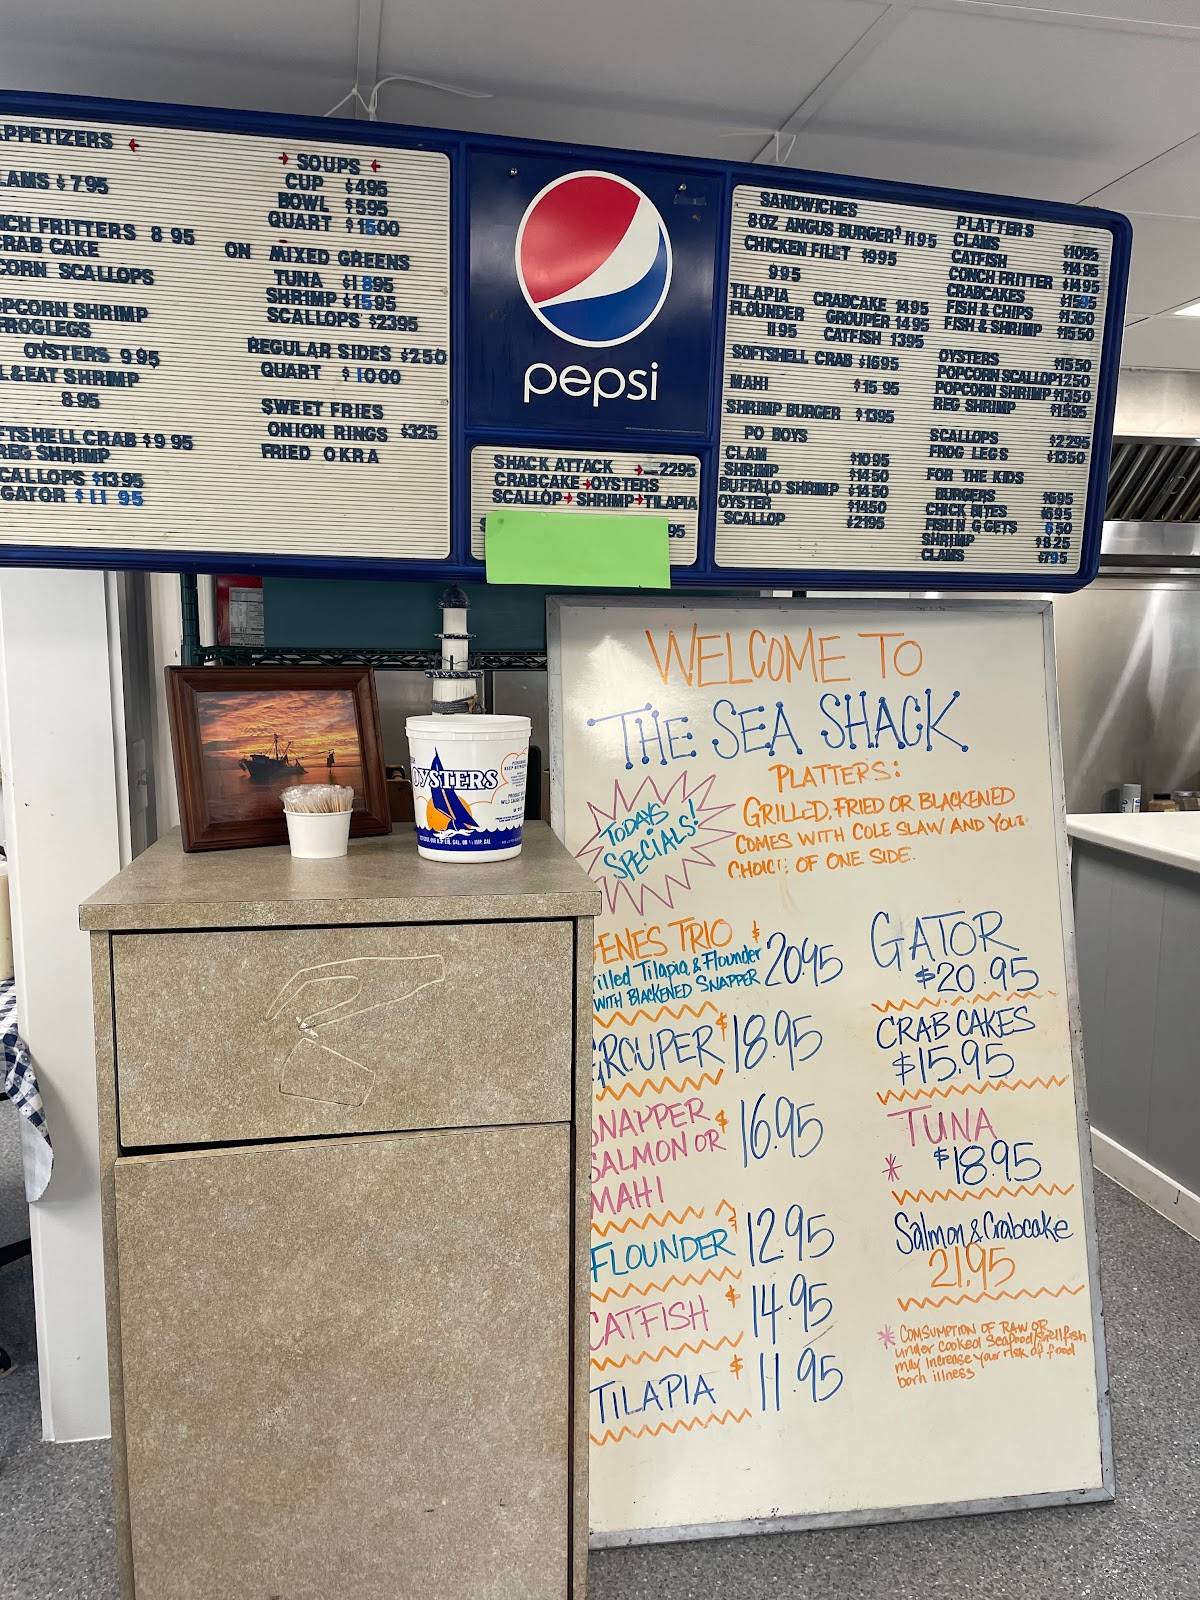 APPETIZERS
LAMS $7 95
CH FRITTERS 8 95
CRAB CAKE
CORN SCALLOPS
OPCORN SHRIMP
FROGLEGS
OYSTERS 9 95
L&EAT SHRIMP
8.95
FTSHELL CRAB $9 95
REG SHRIMP
CALLOPS $13.95
GATOR $11 95
SOUPS
CUP $4 95
BOWL $5 95
QUART $15 00
ON MIXED GREENS
TUNA $18 95
SHRIMP $15.95
SCALLOPS $23 95
REGULAR SIDES $2 50
QUART $10 00
SWEET FRIES
ONION RINGS $3 25
FRIED OKRA
pepsi
SHACK ATTACK 22 95
CRABCAKE OYSTERS
SCALLOP SHRIMP TILAPIA
95
SANDWICHES
8 OZ ANGUS BURGER $11 95
CHICKEN FILET $9 95
9 95
TILAPIA CRABCAKE 14 95
FLOUNDER GROUPER 14 95
11 95 CATFISH 13 95
SOFTSHELL CRAB $16 95
MAHI $15 95
SHRIMP BURGER $13 95
PO BOYS
CLAM $10 95
SHRIMP $14 50
BUFFALO SHRIMP $14 50
OYSTER $14 50
SCALLOP $21 95
PLATTERS
CLAMS $10 95
CATFISH $14 95
CONCH FRITTER $14 95
CRABCAKES $15 95
FISH & CHIPS $13 50
FISH & SHRIMP $15 50
OYSTERS $15 50
POPCORN SCALLOP 12 50
POPCORN SHRIMP $13 50
REG SHRIMP $15 95
SCALLOPS $22 95
FROG LEGS $13 50
FOR THE KIDS
BURGERS $6 95
CHICK BITES $6 95
FISH N GGETS 6 50
SHRIMP $8 25
CLAMS $7 95
OYSTERS
WELCOME TO
THE SEA SHACK
TODAYS
SPECIALS!
PLATTERS:
GRILLED, FRIED OR BLACKENED
COMES WITH COLE SLAW AND YOUR
CHOICE OF ONE SIDE.
ENE'S TRIO $20.95
rilled Tilapia & Flounder
WITH BLACKENED SNAPPER
GROUPER $18.95
SNAPPER $16.95
SALMON OR
MAHI
FLOUNDER $12.95
CATFISH $14.95
TILAPIA $11.95
GATOR
$20.95
CRAB CAKES
$15.95
TUNA
* $18.95
Salmon & Crabcake
21.95
* COMSUMPTION OF RAW OR
under cooked Seafood/Shellfish
may increase your risk of food
born illness